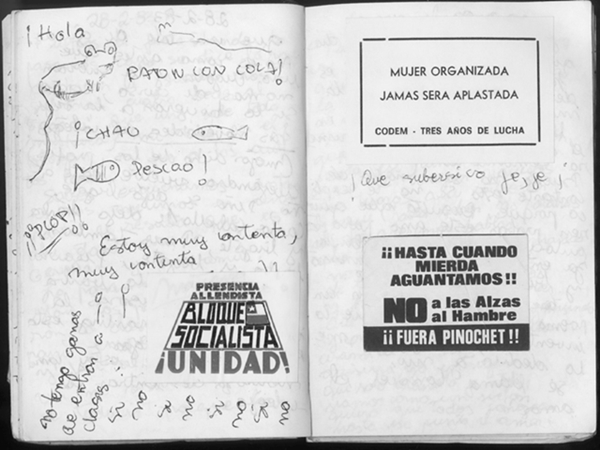 ¡Hola
RATÓN CON COLA!
¡CHAO
Pescao!
¡¡PLOP!!
Estoy muy contenta,
muy contenta
No tengo ganas
de entrar a
clases
si no si no si no si no
PRESENCIA
ALLENDISTA
BLOQUE
SOCIALISTA
¡UNIDAD!
MUJER ORGANIZADA
JAMAS SERA APLASTADA
CODEM - TRES AÑOS DE LUCHA
¡Que subersivo je, je!
¡¡HASTA CUANDO
MIERDA
AGUANTAMOS!!
NO a las Alzas
al Hambre
¡¡FUERA PINOCHET!!